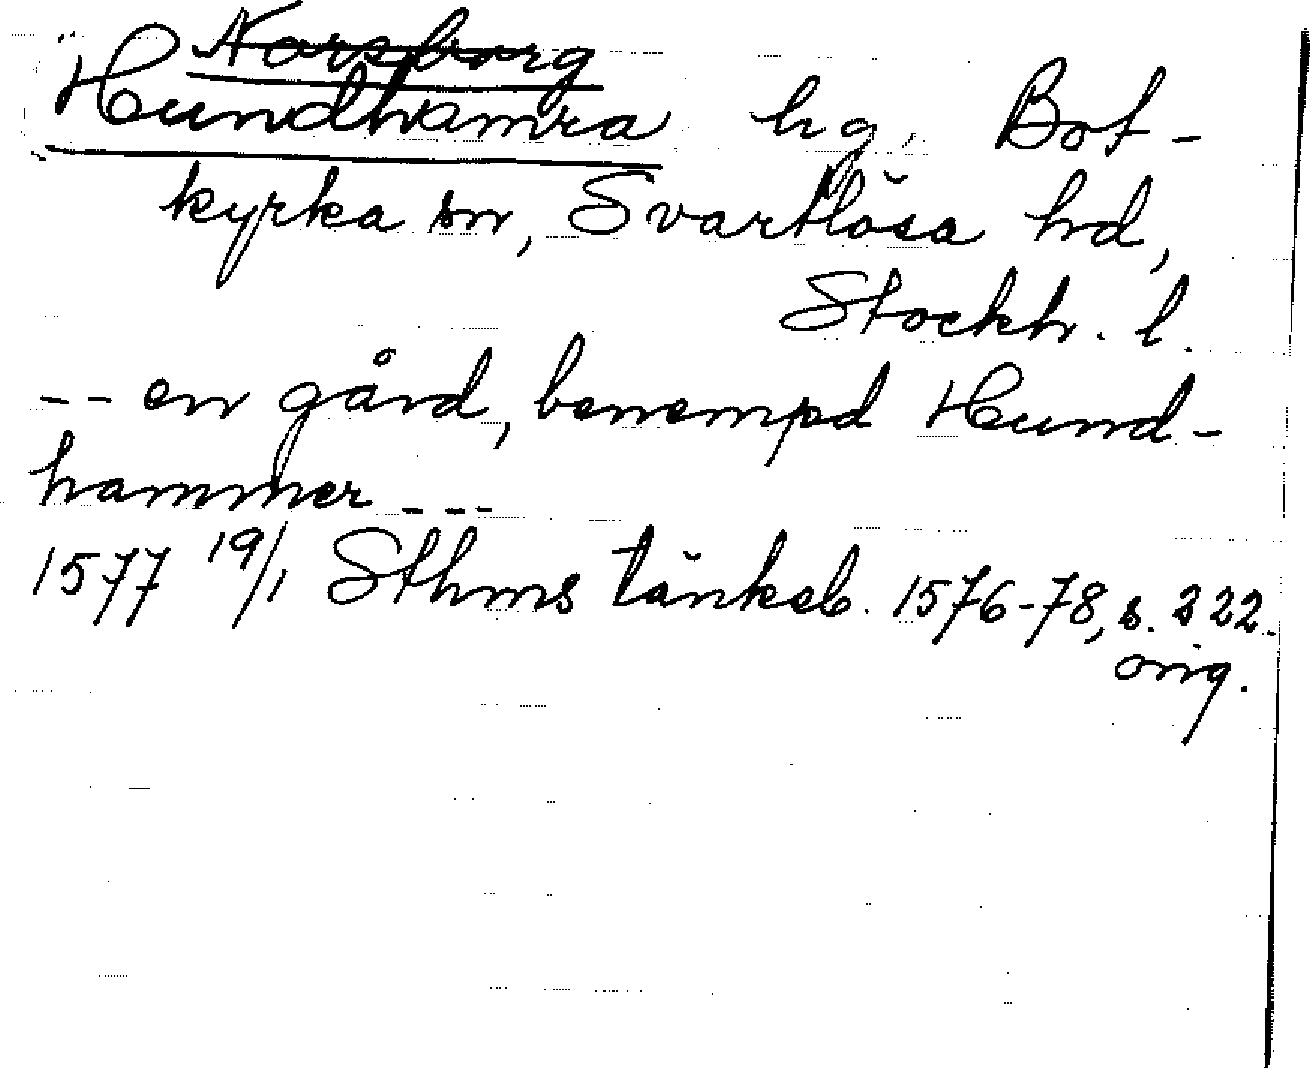 Norsborg
Hundhamra hg, Bot-
kyrka sn, Svartlösa hd,
Stockh. l.
-- en gård, benempd Hund-
hammer ---
1577 19/1 Sthms tänkeb. 1576-78, s. 222.
orig.